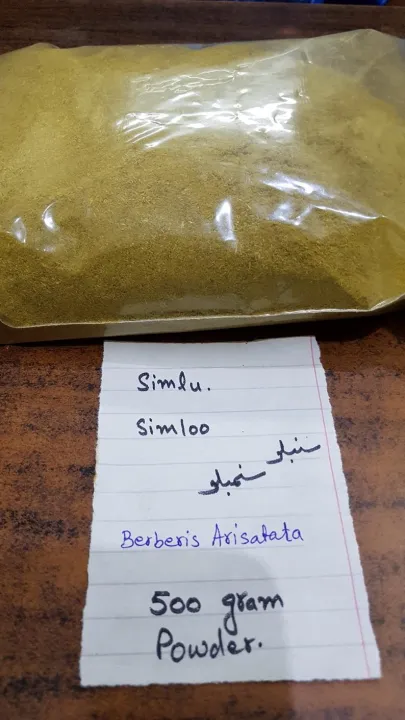 Simlu.
Simloo
سنبلو
سنمبلو
Berberis Arisatata
500 gram
Powder.